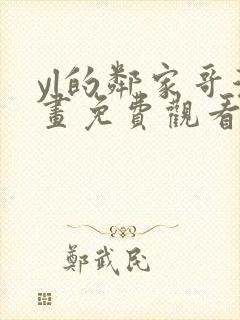 yl的鄰家哥
畫免費觀看
鄭武民